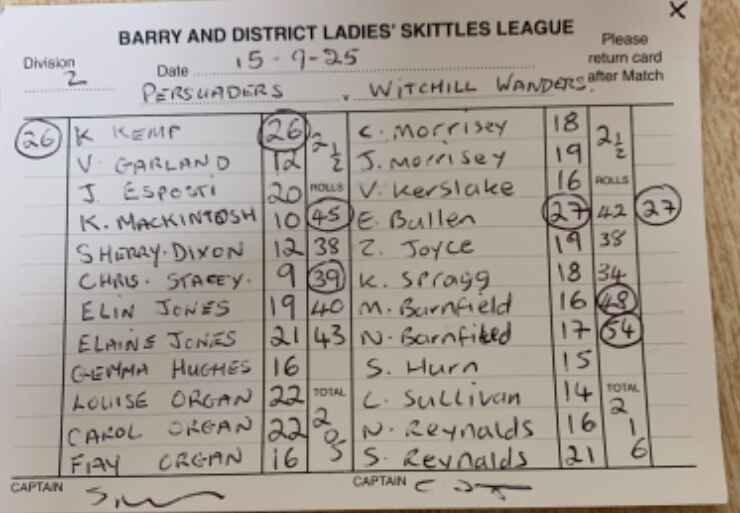 BARRY AND DISTRICT LADIES' SKITTLES LEAGUE
Division 2 Date 15-9-25 Please return card after Match
PERSUADERS v WITCHILL WANDERS
26 K KEMP 26 2½ C. Morrisey 18 2½
V. GARLAND 12 J. Morrisey 19
J. ESPOSTI 20 ROLLS V. Kerslake 16 ROLLS
K. MACKINTOSH 10 45 E. Bullen 27 42 27
SHERRY. DIXON 12 38 Z. Joyce 19 38
CHRIS. STACEY. 9 39 K. Spragg 18 34
ELIN JONES 19 40 M. Barnfield 16 48
ELAINE JONES 21 43 N. Barnfiled 17 54
GEMMA HUGHES 16 S. Hurn 15
LOUISE ORGAN 22 TOTAL L. Sullivan 14 TOTAL
CAROL ORGAN 22 205 N. Reynalds 16 216
FIAY ORGAN 16 S. Reynalds 21
CAPTAIN CAPTAIN